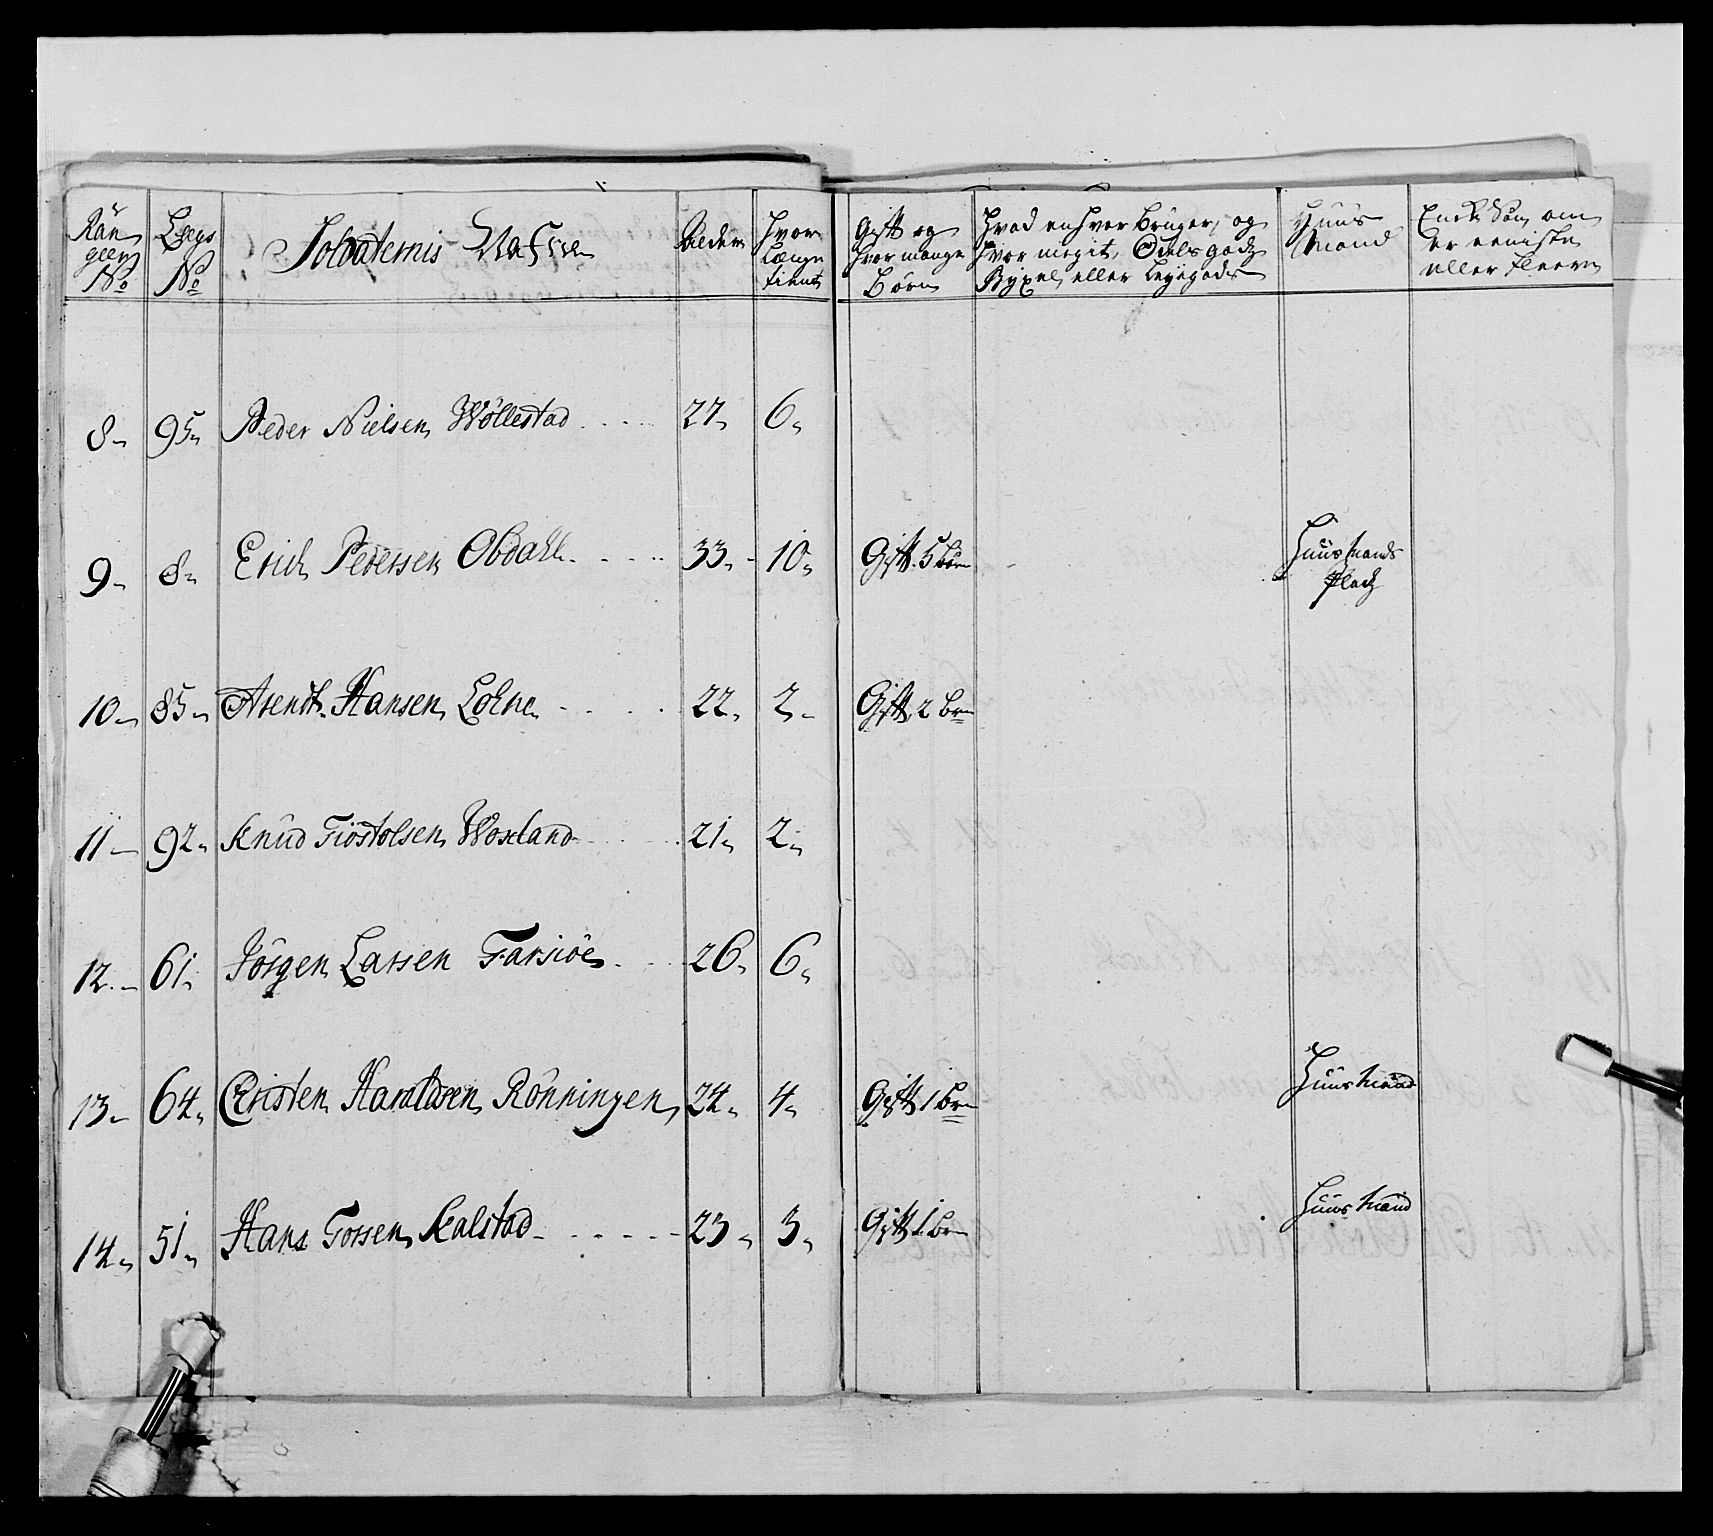 Rangeers No | Lægs No | Soldaternis Nafne | Alder | hvor Længe tient | Gift og hvor mange Børn | Hvad enhver Bruger, og hvor megit, Odels godz Byxel, eller Leyegods | Huus Mand | Enckt Søn, om er eeniste eller fleere
8 | 95 | Peder Nielsen Wöllestad | 27 | 6
9 | 8 | Erich Pedersen Obdahl | 33 | 10 | Gift 5 børn | Huusmands Pladz
10 | 85 | Arendt Hansen Lohne | 22 | 2 | Gift, 2 br
11 | 92 | Knud Tiöstolsen Woxland | 21 | 2
12 | 61 | Jörgen Larsen Farsiöe | 26 | 6
13 | 64 | Christen Haraldsen Rönningen | 24 | 4 | Gift 1 br | Huusmand
14 | 51 | Hans Torsen Kalstad | 23 | 3 | Gift 1 br | Huusmand